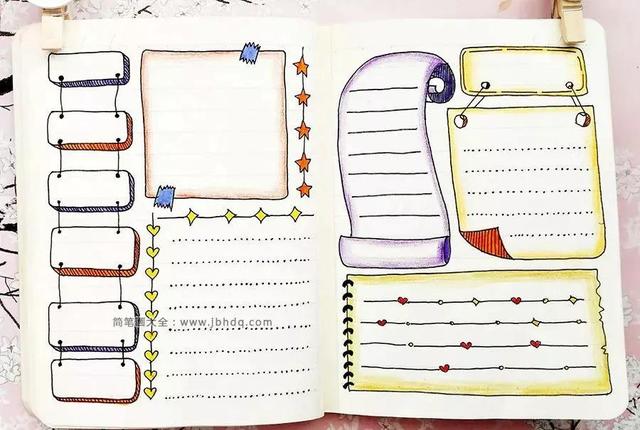 简笔画大全：www.jbhdq.com